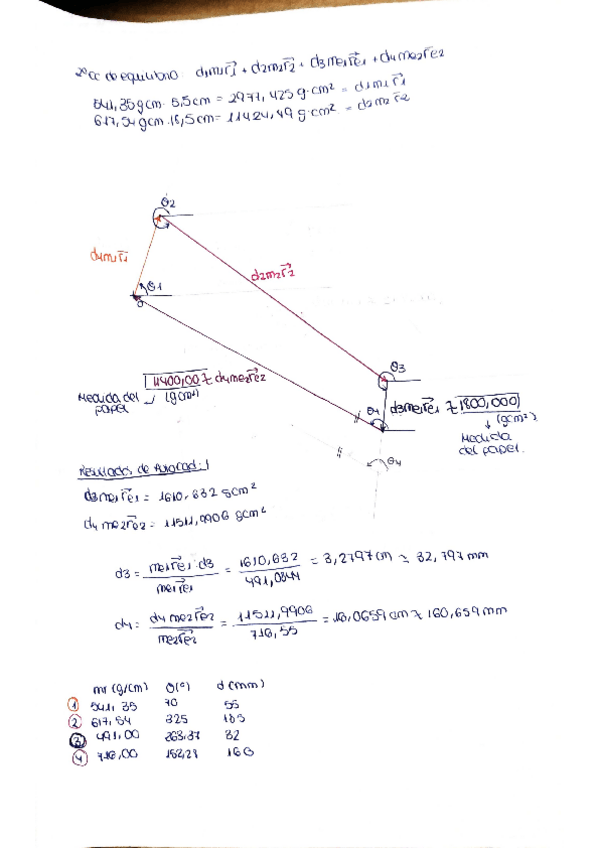 2ª CC de equilibrio d1m1r1 + d2m2r2 + d3me1re1 + d4me2re2
541,35gcm · 5,5cm = 2977,425 g·cm² = d1m1r1
617,54 gcm · 18,5cm = 11424,49 g·cm² = d2m2r2
θ2
d1m1r1
d2m2r2
θ1
O
θ3
11400,00 ≈ d4me2re2
Medida del papel (gcm²)
θ4
d3me1re1 ≈ 1800,000
(gcm²)
Medida del papel.
θ4
Resultados de Autocad:
d3me1re1 = 1610,632 gcm²
d4me2re2 = 11511,9906 gcm²
d3 = me1re1·d3 / me1re1 = 1610,632 / 491,0844 = 3,2797cm ≈ 32,797 mm
d4 = d4me2re2 / me2re2 = 11511,9906 / 716,55 = 16,0659 cm ≈ 160,659mm
mr (g/cm) θ(°) d (mm)
1 541,35 70 55
2 617,54 325 185
3 491,00 32
4 716,00 160